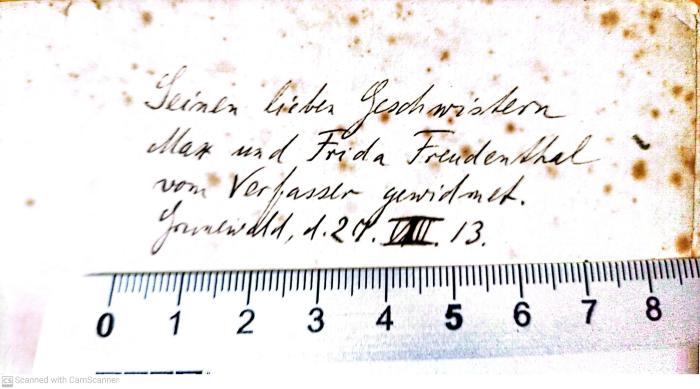 Seinen lieben Geschwistern
Max und Frida Freudenthal
vom Verfasser gewidmet.
Grunewald, d. 27. VIII. 13.
0 1 2 3 4 5 6 7 8
CS Scanned with CamScanner